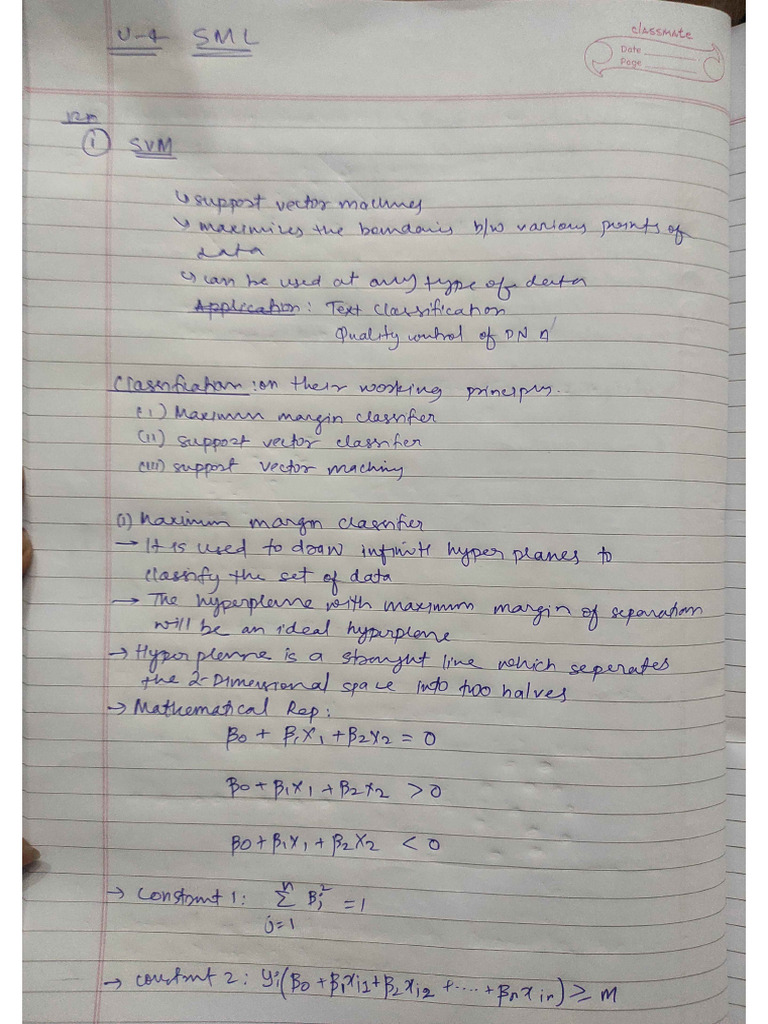 U-4 SML
classmate
Date
Page
12m
(i) SVM
↳ support vector machines
↳ maximizes the boundaries b/w various points of
data
↳ can be used at any type of data
Application: Text classification
Quality control of DNA
Classification: on their working principles.
(i) Maximum margin classifier
(ii) support vector classifer
(iii) support vector machines
(i) Maximum margin classifier
→ It is used to draw infinite hyper planes to
classify the set of data
→ The hyperplane with maximum margin of separation
will be an ideal hyperplane
→ Hyperplenne is a straight line which seperates
the 2-Dimensional space into two halves
→ Mathematical Rep:
β0 + β1x1 + β2x2 = 0
β0 + β1x1 + β2x2 > 0
β0 + β1x1 + β2x2 < 0
→ Constant 1: n Σ j=1 βj² = 1
→ Constant 2: yi(β0 + β1xi1 + β2xi2 + .... + βnxin) ≥ M